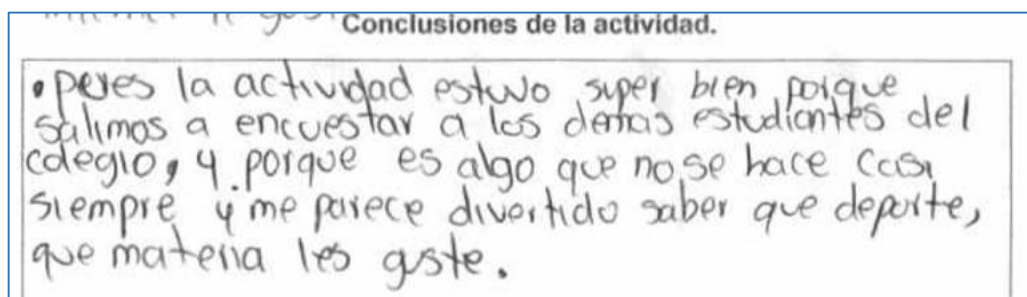 Conclusiones de la actividad.
• peues la actividad estuvo super bien porque
salimos a encuestar a los demas estudiantes del
colegio, y porque es algo que no se hace casi
siempre y me parece divertido saber que deporte,
que materia les guste.